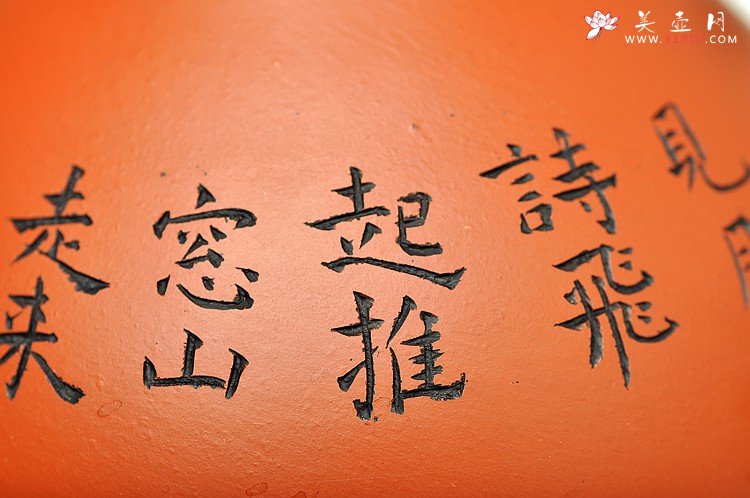 美壶网
WWW.51POT.COM
見
詩飛
起推
窓山
走来